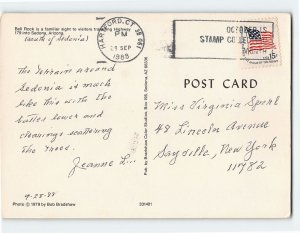 Bell Rock is a familiar sight to visitors traveling Highway
179 into Sedona, Arizona.
(South of Sedona)
HARTFORD, CT
PM
23 SEP
1988
OCTOBER IS
STAMP CO
15c
POST CARD
The terrain around
Sedona is much
like this with the
buttes lower and
clearings scattering
the trees.
Jeanne L..
9-23-88
Miss Virginia Sperl
48 Lincoln Avenue
Sayville, New York
11782
Photo © 1979 by Bob Bradshaw
331481
Pub by Bradshaw Color Studios, Box 195, Sedona, AZ 86336